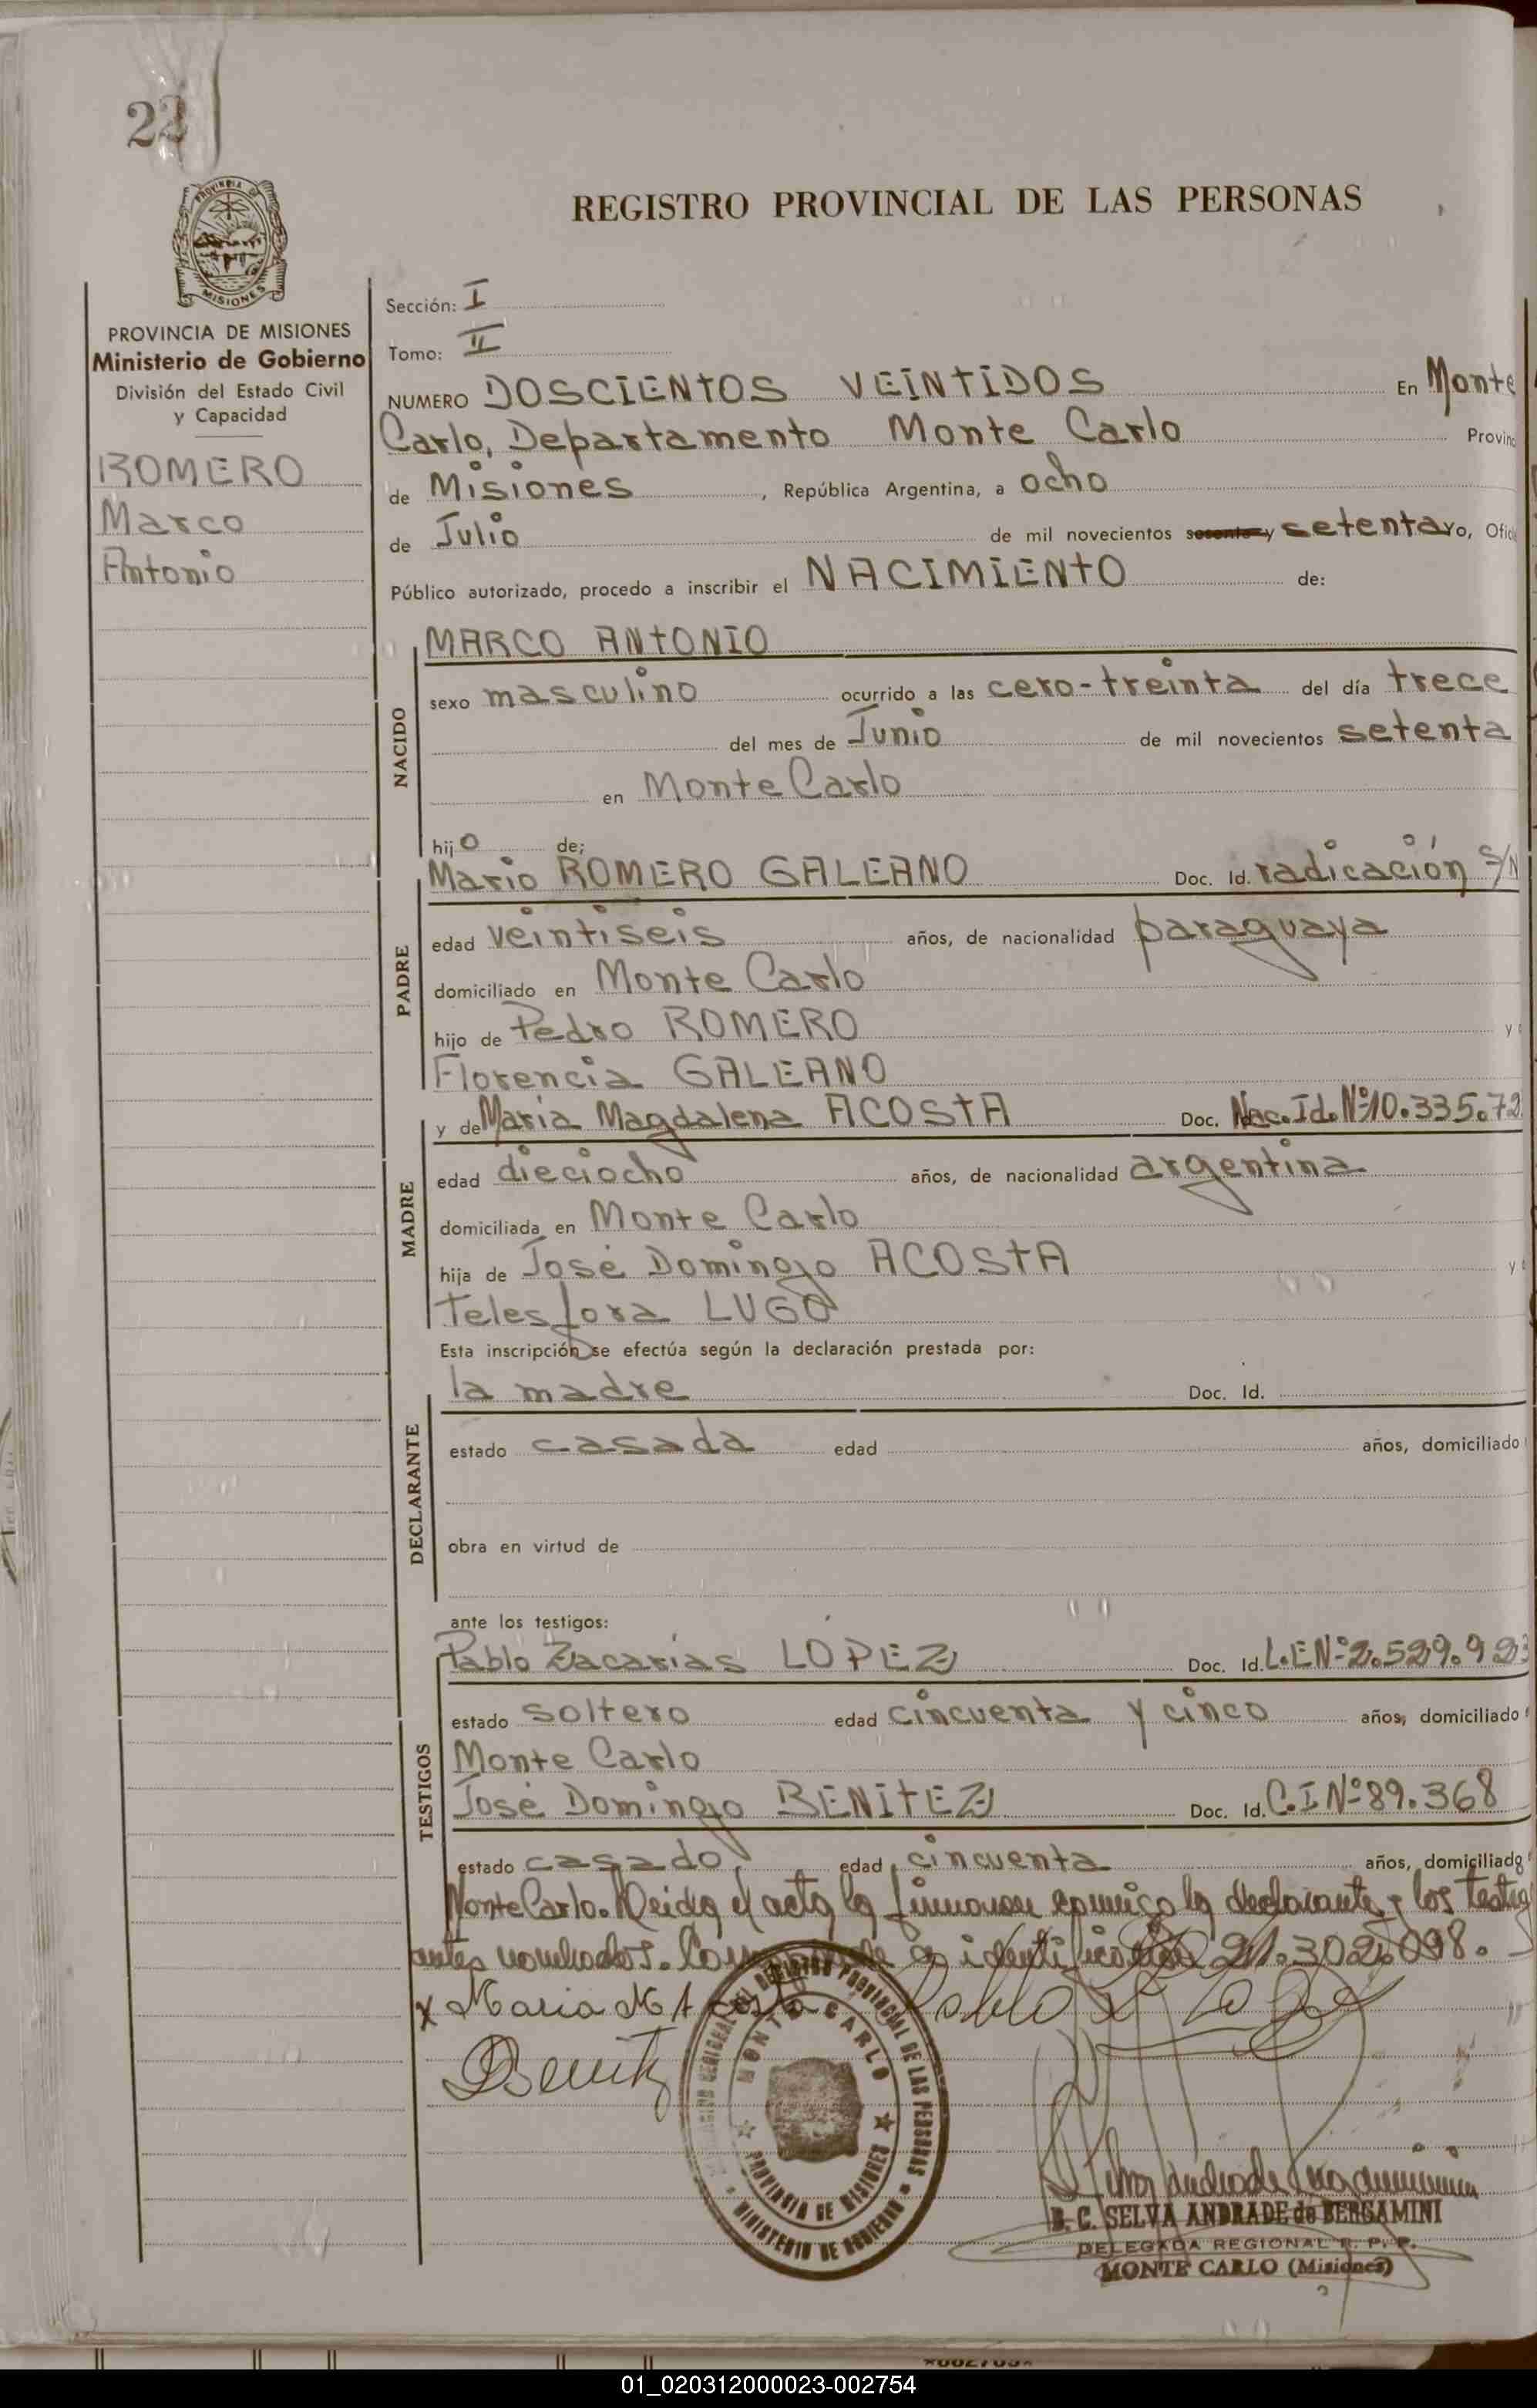 22
PROVINCIA DE
MISIONES
REGISTRO PROVINCIAL DE LAS PERSONAS
PROVINCIA DE MISIONES
Ministerio de Gobierno
División del Estado Civil
y Capacidad
ROMERO
Marco
Antonio
Sección: I
Tomo: II
NUMERO DOSCIENTOS VEINTIDOS En Monte
Carlo, Departamento Monte Carlo Provinc
de Misiones, República Argentina, a ocho
de Julio de mil novecientos sesenta y setenta yo, Ofici
Público autorizado, procedo a inscribir el NACIMIENTO de:
NACIDO
MARCO ANTONIO
sexo masculino ocurrido a las cero-treinta del día trece
del mes de Junio de mil novecientos setenta
en Monte Carlo
hijo de;
PADRE
Mario ROMERO GALEANO Doc. Id. radicación S/N
edad veintiseis años, de nacionalidad paraguaya
domiciliado en Monte Carlo
hijo de Pedro ROMERO y
Florencia GALEANO
MADRE
y de Maria Magdalena ACOSTA Doc. Nac. Id. Nº 10.335.72
edad dieciocho años, de nacionalidad argentina
domiciliada en Monte Carlo
hija de José Domingo ACOSTA y
Telesfora LUGO
Esta inscripción se efectúa según la declaración prestada por:
DECLARANTE
la madre Doc. Id.
estado casada edad años, domiciliado
obra en virtud de
ante los testigos:
TESTIGOS
Pablo Zacarias LÓPEZ Doc. Id. L.E Nº 2.529.923
estado soltero edad cincuenta y cinco años, domiciliado
Monte Carlo
José Domingo BENITEZ Doc. Id. C.I Nº 89.368
estado casado edad cincuenta años, domiciliado
Monte Carlo. Leida el acta la firman conmigo la declarante y los testig
antes nombrados. 21.302.098.
x Maria M A costa Pablo Z Lopez
Benitz
DEL REGISTRO PROVINCIAL DE LAS PERSONAS
MONTE CARLO
PROVINCIA DE MISIONES
MINISTERIO DE GOBIERNO
B. C. SELVA ANDRADE de BERGAMINI
DELEGADA REGIONAL R. P. P.
MONTE CARLO (Misiones)
01_020312000023-002754